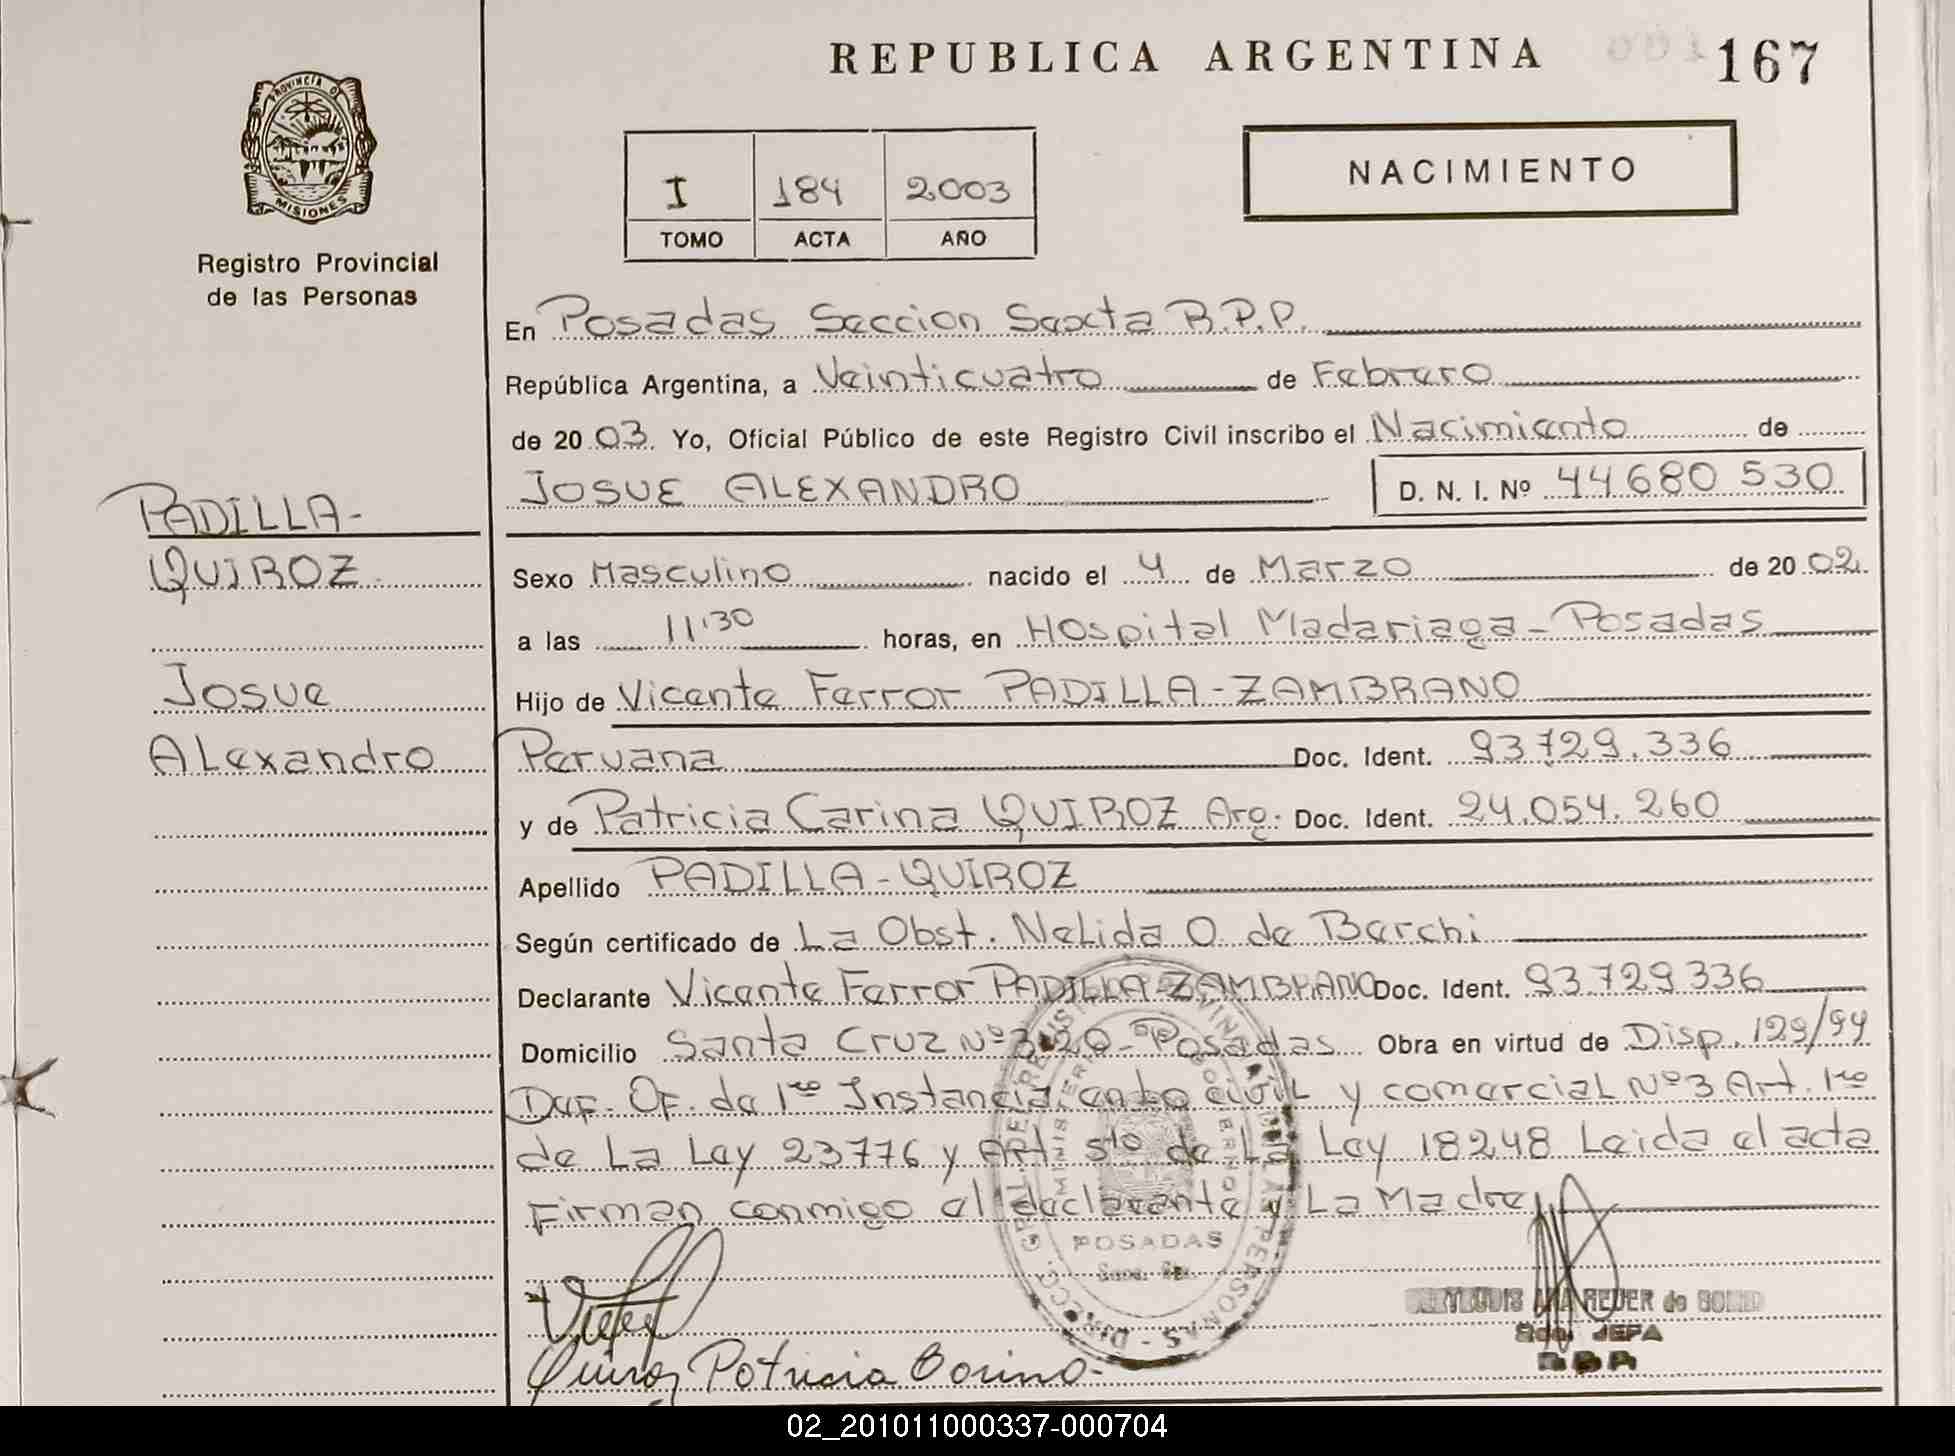 REPUBLICA ARGENTINA 167
PROVINCIA D
MISIONES
Registro Provincial
de las Personas
I 184 2003
TOMO ACTA AÑO
NACIMIENTO
En Posadas Seccion Sexta R.P.P.
República Argentina, a Veinticuatro de Febrero
de 20 03. Yo, Oficial Público de este Registro Civil inscribo el Nacimiento de
JOSUE ALEXANDRO D. N. I. Nº 44680 530
PADILLA-
QUIROZ
Josue
Alexandro
Sexo Masculino nacido el 4 de Marzo de 20 02.
a las 11'30 horas, en Hospital Madariaga - Posadas
Hijo de Vicente Ferror PADILLA-ZAMBRANO
Peruana Doc. Ident. 93.729.336
y de Patricia Carina QUIROZ Arg. Doc. Ident. 24.054.260
Apellido PADILLA-QUIROZ
Según certificado de La Obst. Nelida O. de Berchi
Declarante Vicente Ferror PADILLA-ZAMBRANO Doc. Ident. 93 729 336
Domicilio Santa Cruz Nº 320 - Posadas Obra en virtud de Disp. 129/94
Def. Of. de 1ra Instancia en lo civil y comercial Nº 3 Art. 1ro
de La Ley 23776 y Art 5to de La Ley 18248 Leida el acta
Firman conmigo el declarante y La Madre
POSADAS
Quiroz Patricia Carina.-
REDER de
JEFA
02_201011000337-000704